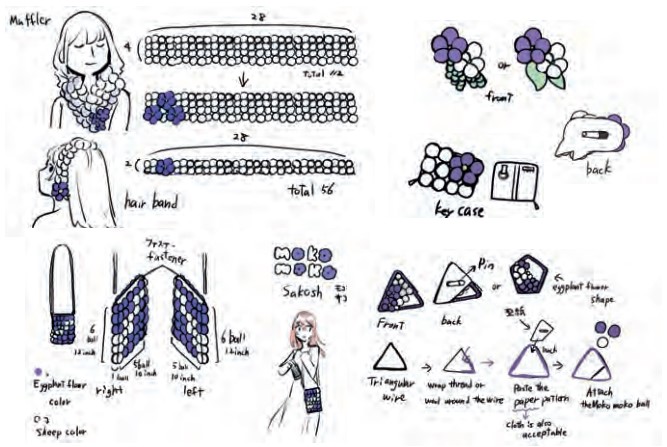 Muffler
28
4
total 112
28
2
total 56
hair band
or
front
back
key case
ファスナー
fastener
6
ball
12inch
5ball
10inch
1 ball
right
5ball
10inch
left
6 ball
12inch
Eggplant flower
color
Sheep color
MOKO
MOKO
モコ
モコ
Sakosh
Front
back
Pin
or
eggplant flower
shape
型紙
back
Triangular
wire
wrap thread or
wool around the wire
Paste the
paper pattern
cloth is also
acceptable
Attach
the Moko moko ball